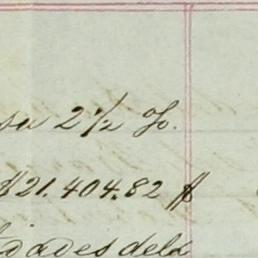 sa 2 1/2 %.
$21.404.82 $
dades del